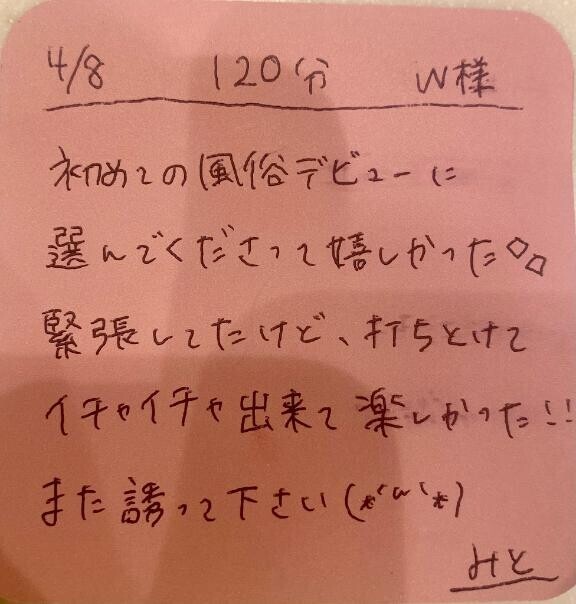 4/8 120分 W様
初めての風俗デビューに
選んでくださって嬉しかった◇◇
緊張してたけど、打ちとけて
イチャイチャ出来て楽しかった!!
また誘って下さい(*'ω'*)
みと